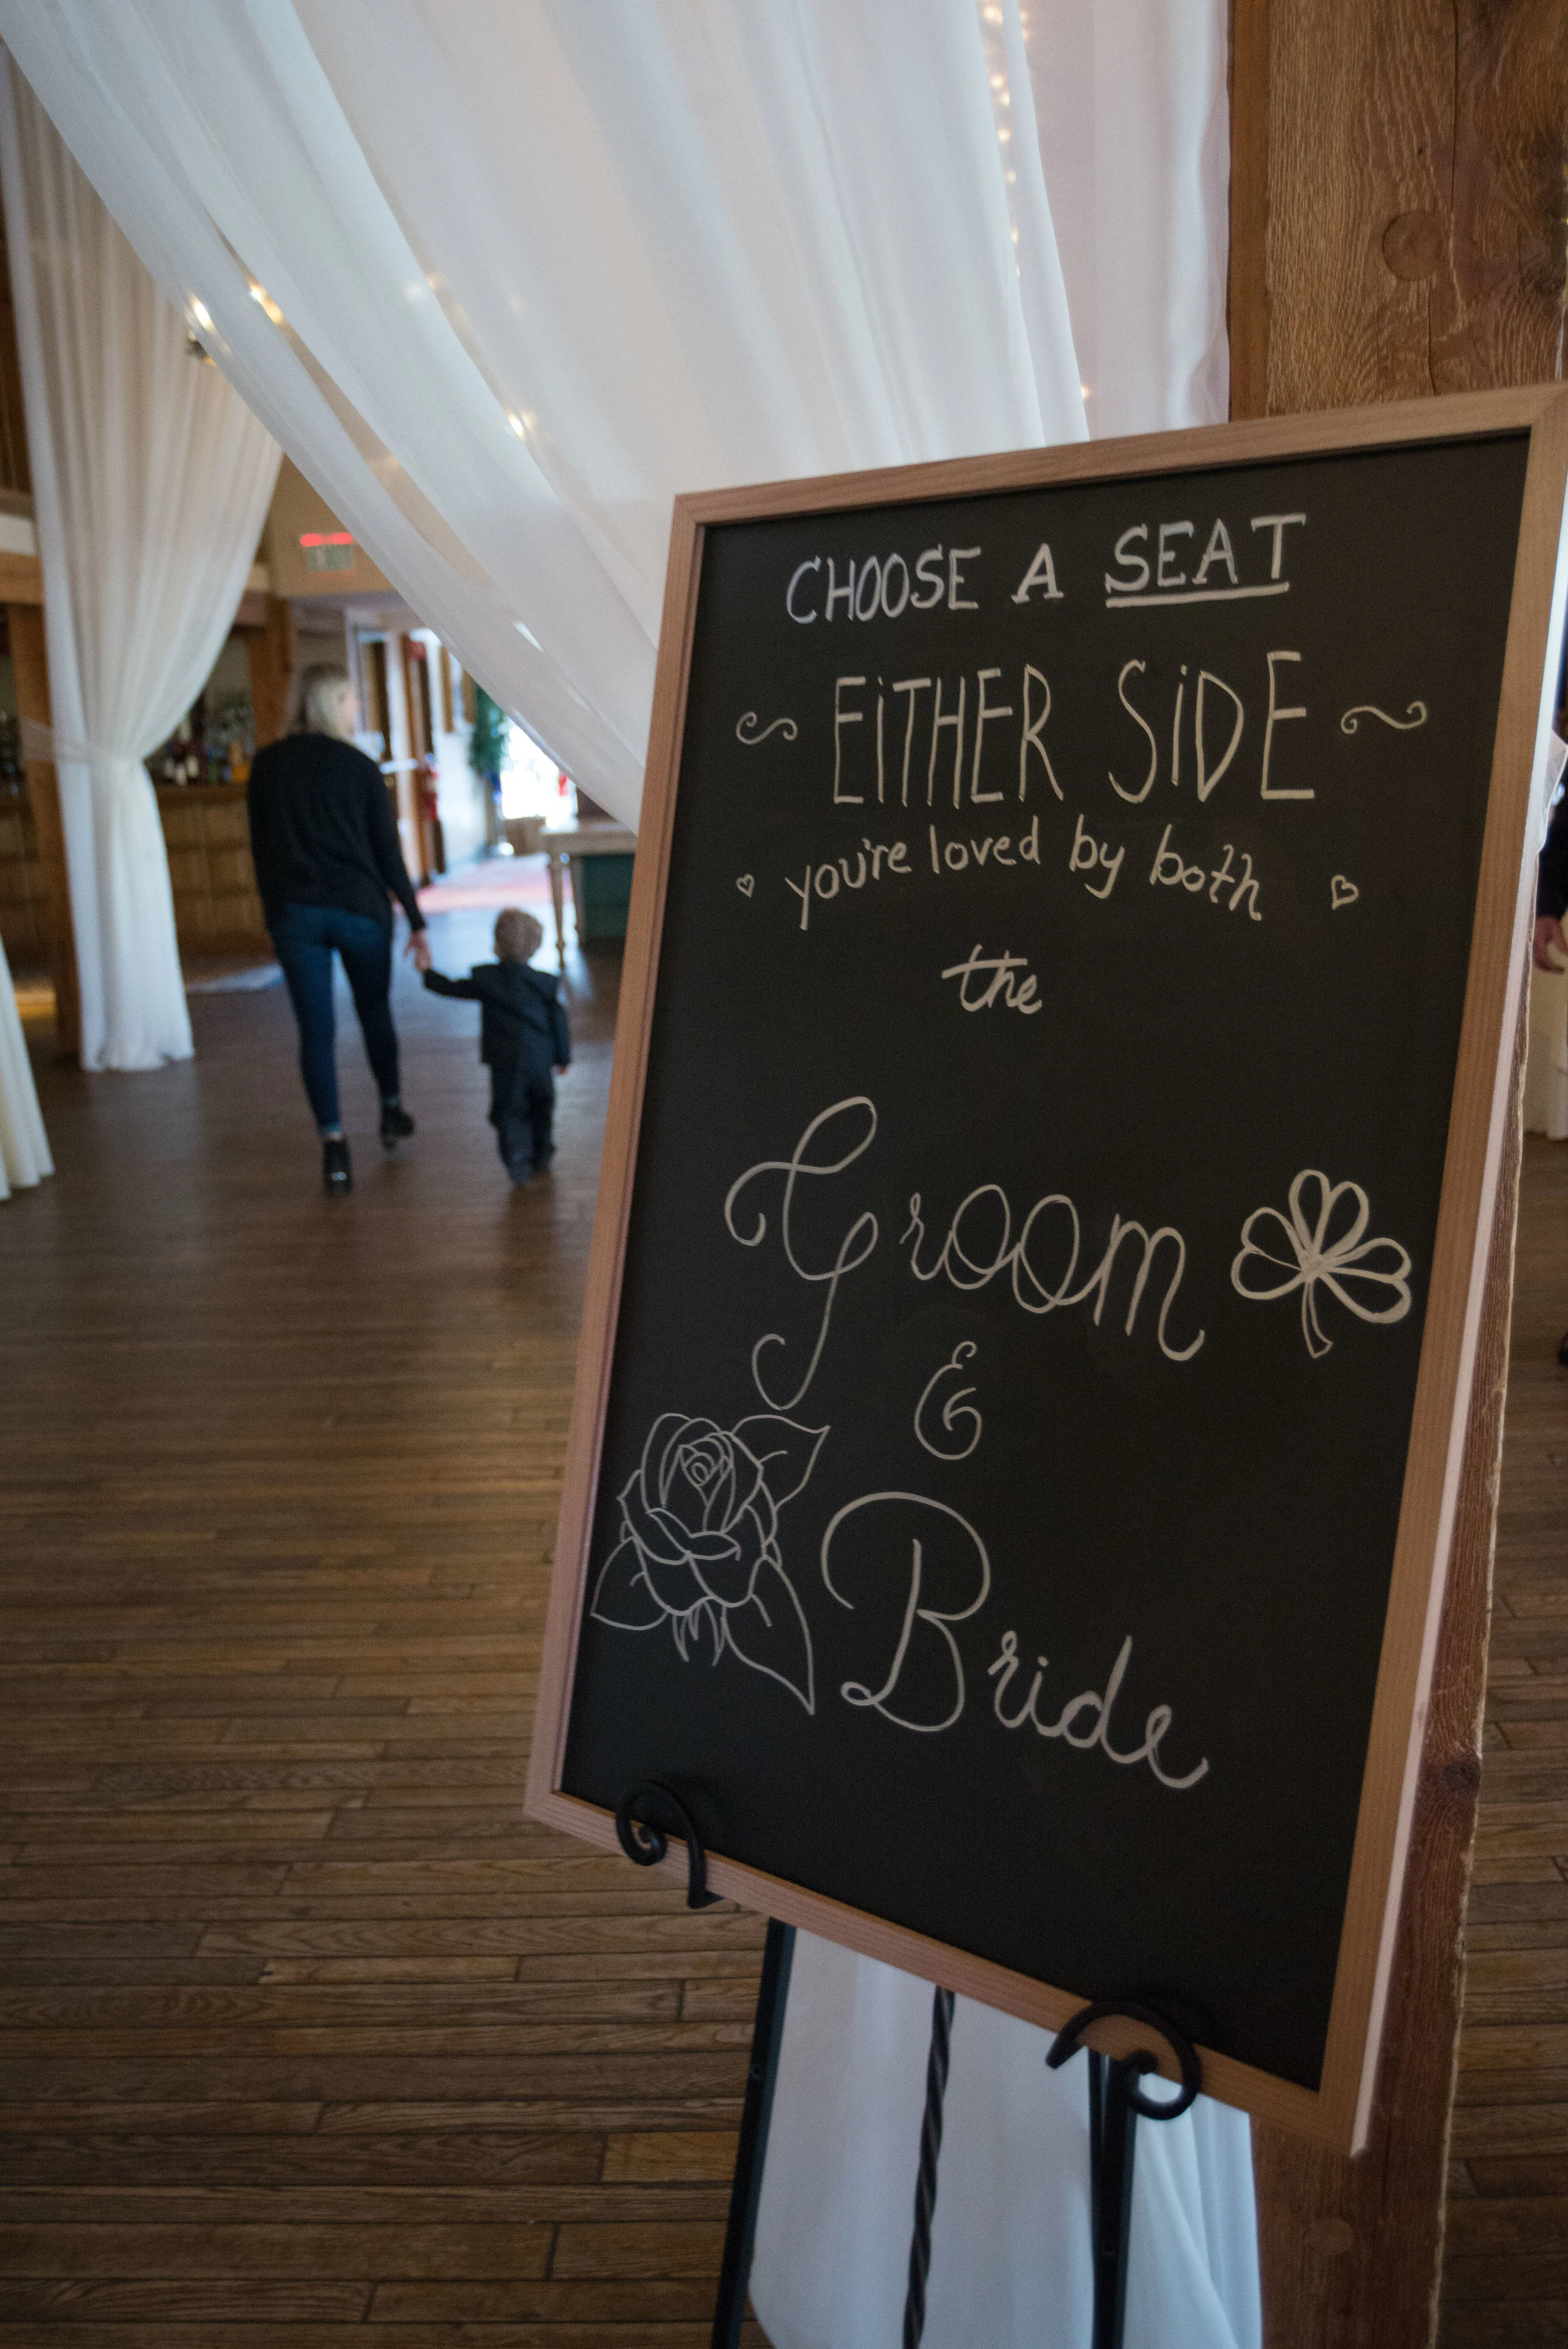 CHOOSE A SEAT
EiTHER SiDE
you're loved by both
the
Groom
&
Bride